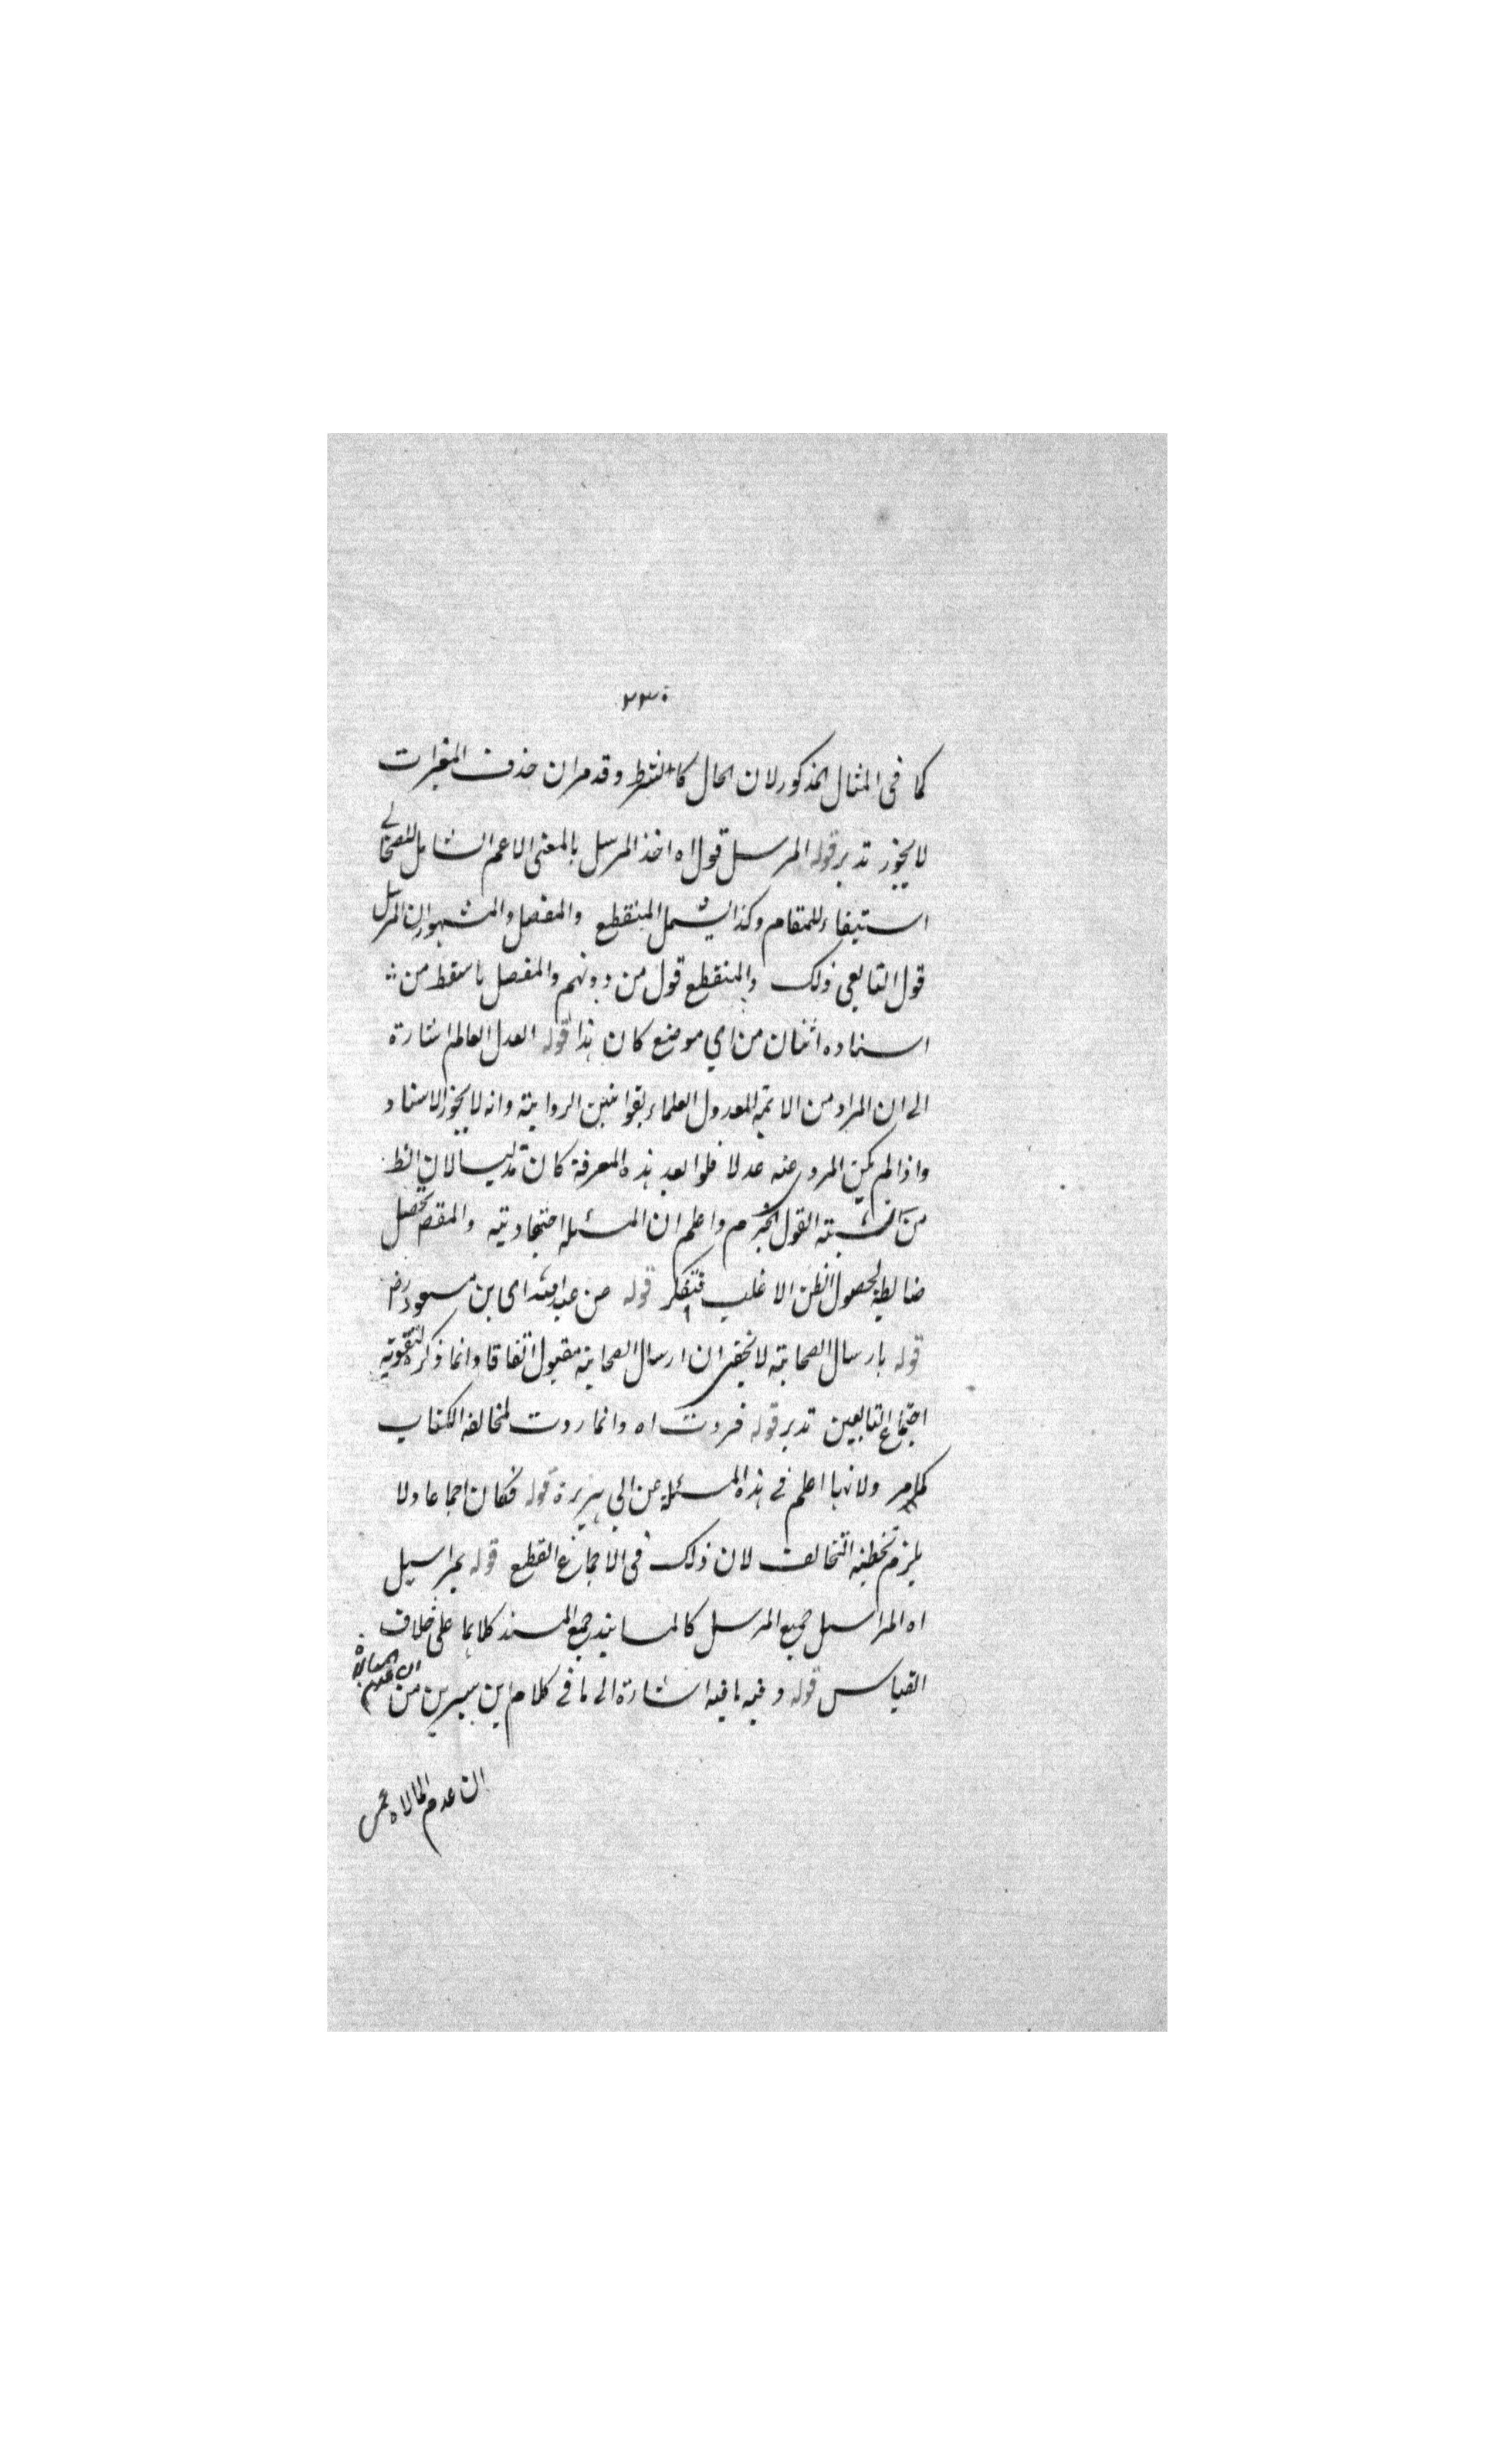 ٢٣٠
كما فى المثال المذكور لان الحال كالشرط وقد مر ان حذف المغيرات
لا يجوز تدبر قوله المرسل قول اه اخذ المرسل بالمعنى الاعم الشامل للصحابي
استيفاء للمقام وكذا يشمل المنقطع والمعضل والمشهور ان المرسل
قول التابعى ذلك والمنقطع قول من دونهم والمعضل ما سقط من
اسناده اثنان من اي موضع كان هذا قوله العدل العالم اشارة
الى ان المراد من الائمة العدول العلماء بقوانين الرواية وانه لا يجوز الاسناد
واذا لم يكن المروي عنه عدلا فلو بعد هذه المعرفة كان تدليسا لان الظ
من نسبته القول الجزم واعلم ان المسئلة اجتهادية والمقص تحصيل
ضابطة لحصول الظن الاغلب فتفكر قوله عن عبد الله اى بن مسعود رض
قوله بارسال الصحابة لا يخفى ان ارسال الصحابة مقبول اتفاقا وانما ذكره لتقوية
اجماع التابعين تدبر قوله فردت اه وانما ردت لمخالفة الكتاب
كما مر ولانها اعلم فى هذه المسئلة من ابي هريرة قوله فكان اجماعا ولا
يلزم تخطئة التخالف لان ذلك فى الاجماع القطع قوله بمراسيل
اه المراسيل جميع المرسل كالمسانيد جميع المسند كلاهما على خلاف
القياس قوله وفيه ما فيه اشارة الى ما فى كلام ابن سيرين من
ان عدم المبالاة
ان عدم المبالاة عن